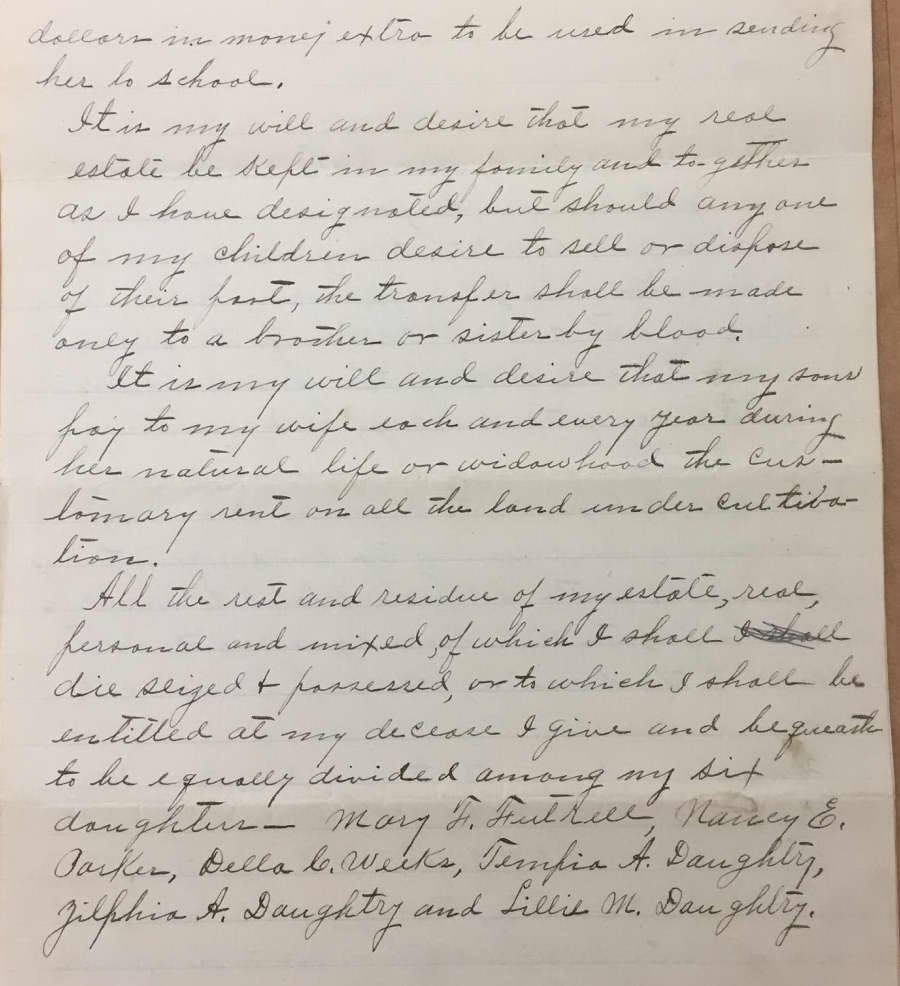 dollars in money extra to be used in sending
her to school.
It is my will and desire that my real
estate be kept in my family and to-gether
as I have designated, but should any one
of my children desire to sell or dispose
of their part, the transfer shall be made
only to a brother or sister by blood.
It is my will and desire that my sons
pay to my wife each and every year during
her natural life or widowhood the cus-
tomary rent on all the land under cultiva-
tion.
All the rest and residue of my estate, real,
personal and mixed, of which I shall I shall
die seized & possessed, or to which I shall be
entitled at my decease I give and bequeath
to be equally divided among my six
daughters - Mary F. Futrell, Nancy E.
Parker, Della C. Weeks, Tempia A. Daughtry,
Zilphia A. Daughtry and Lillie M. Daughtry.